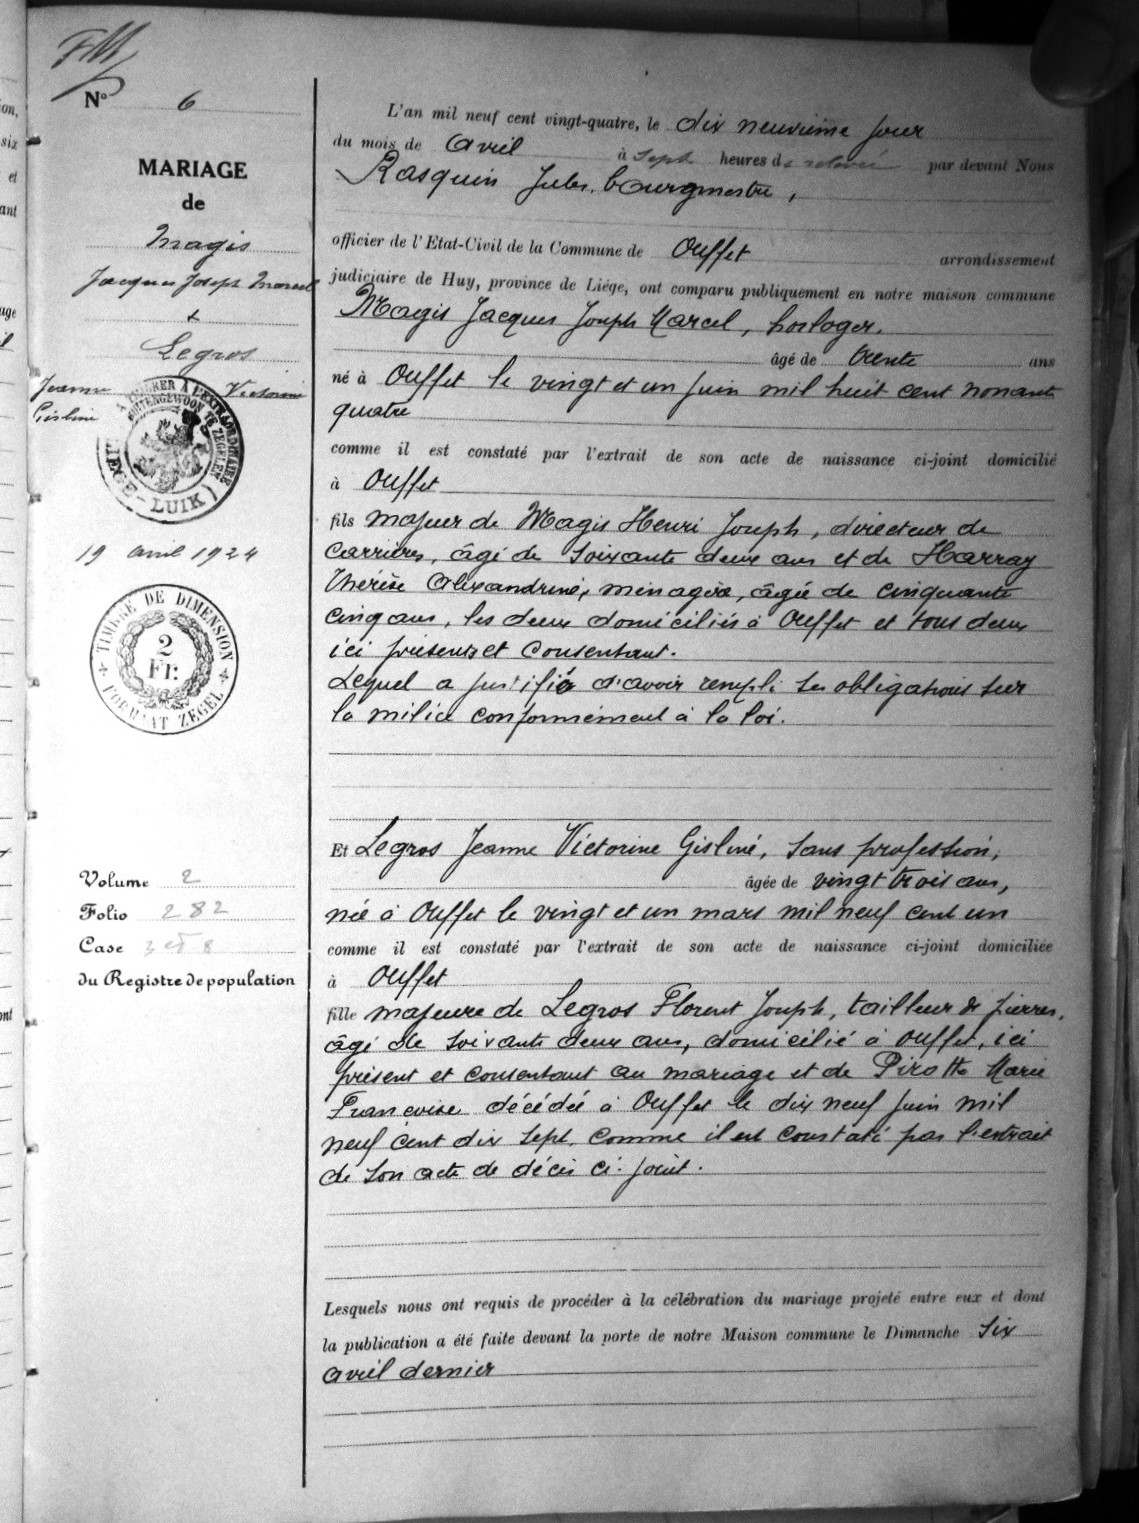 FM
N° 6
MARIAGE
de
Magis
Jacques Joseph Marcel
&
Legros
Jeanne Victorine
Gisline
A TIMBRER À L'EXTRAORDINAIRE
BUITENGEWOON TE ZEGELEN
(LIÉGE - LUIK)
19 avril 1924
TIMBRE DE DIMENSION
2
Fr.
FORMAT ZEGEL
Volume 2
Folio 282
Case 3 et 8
du Registre de population
L'an mil neuf cent vingt-quatre, le dix neuvième jour
du mois de Avril à sept heures de relevée par devant Nous
Rasquin Jules, bourgmestre,
officier de l'Etat-Civil de la Commune de Ouffet arrondissement
judiciaire de Huy, province de Liége, ont comparu publiquement en notre maison commune
Magis Jacques Joseph Marcel, horloger.
âgé de trente ans
né à Ouffet le vingt et un Juin mil huit cent nonante
quatre
comme il est constaté par l'extrait de son acte de naissance ci-joint domicilié
à Ouffet
fils majeur de Magis Henri Joseph, directeur de
Carrières, âgé de soixante deux ans et de Harray
Thérèse Alexandrine, ménagère, âgée de cinquante
cinq ans, les deux domiciliés à Ouffet et tous deux
ici présents et consentant.
Lequel a justifié d'avoir rempli ses obligations sur
la milice conformément à la loi.
Et Legros Jeanne Victorine Gisline, sans profession,
âgée de vingt trois ans,
née à Ouffet le vingt et un mars mil neuf cent un
comme il est constaté par l'extrait de son acte de naissance ci-joint domiciliée
à Ouffet
fille majeure de Legros Florent Joseph, tailleur de pierres,
âgé de soixante deux ans, domicilié à Ouffet, ici
présent et consentant au mariage et de Pirotte Marie
Françoise décédée à Ouffet le dix neuf Juin mil
neuf cent dix sept, comme il est constaté par l'extrait
de son acte de décès ci-joint.
Lesquels nous ont requis de procéder à la célébration du mariage projeté entre eux et dont
la publication a été faite devant la porte de notre Maison commune le Dimanche six
avril dernier